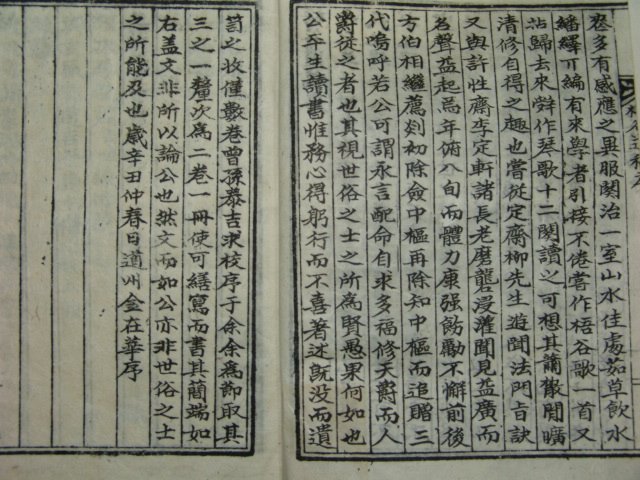 忞多有感應之異服闋治一室山水佳處茹草飲水
繙繹可編有來學者引接不倦嘗作梧谷歌一首又
沾歸去來辭作琴歌十二闋讀之可想其蕭散閒曠
清修自得之趣也嘗從定齋柳先生遊聞法門旨訣
又與許性齋李定軒諸長老磨礲浸灌聞見益廣而
名聲益起焉年俯八旬而體力康强飭勵不懈前後
方伯相繼薦剡初除僉中樞再除知中樞而追贈三
代嗚呼若公可謂永言配命自求多福修天爵而人
爵從之者也其視世俗之士之所爲賢愚果何如也
公平生讀書惟務心得躬行而不喜著述旣没而遺
笥之收僅數卷曾孫泰吉求校序于余余爲節取其
三之一釐次爲二卷一冊使可繕寫而書其簡端如
右盖文非所以論公也然文而如公亦非世俗之士
之所能及也歲辛丑仲春日道州金在華序